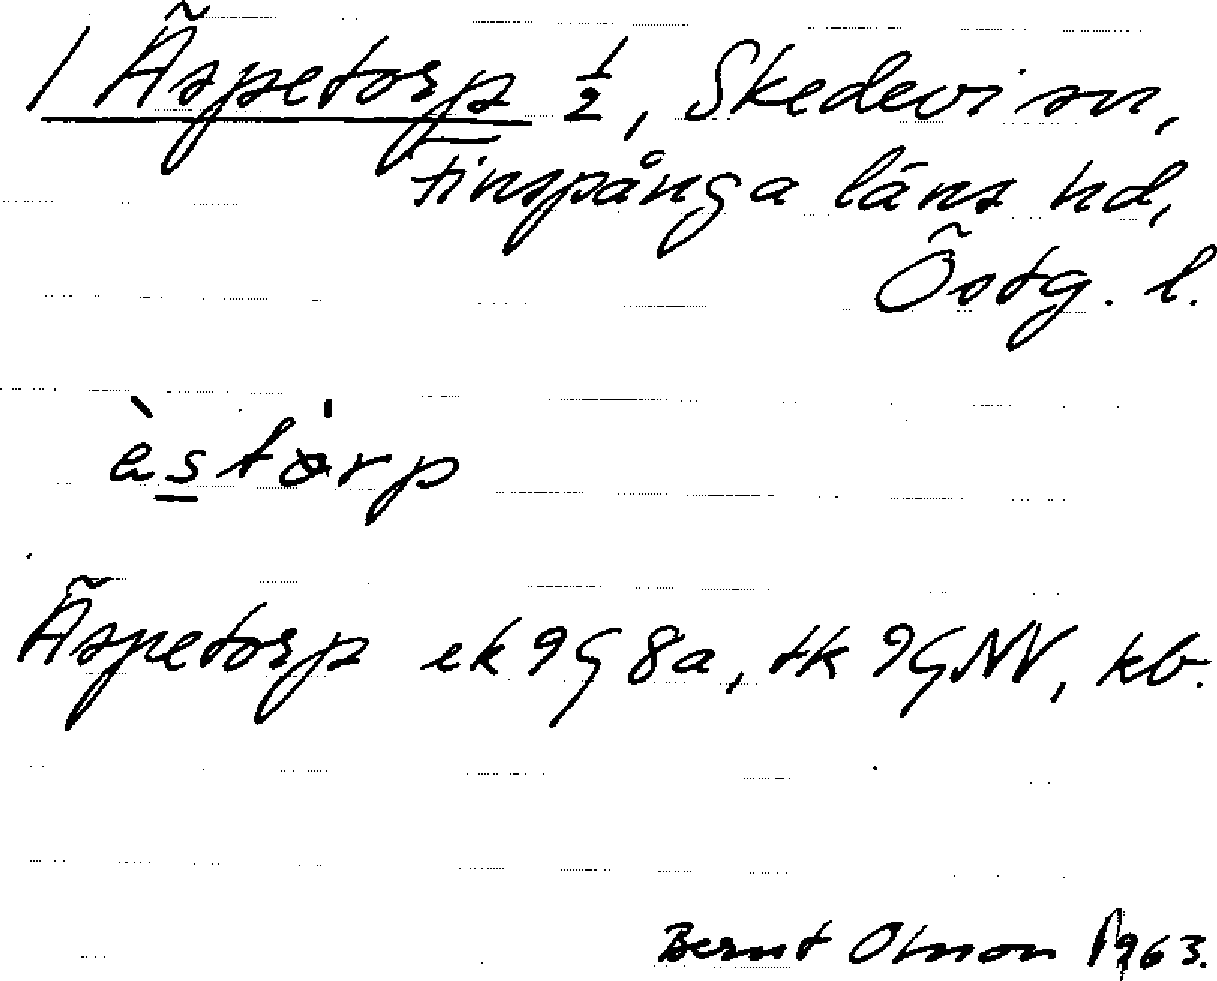 1 Äspetorp ½, Skedevi sn,
Finspånga läns hd,
Östg. l.
èstòrp
Äspetorp ek 9G 8a, tk 9G NV, kb.
Bernt Olsson 1963.